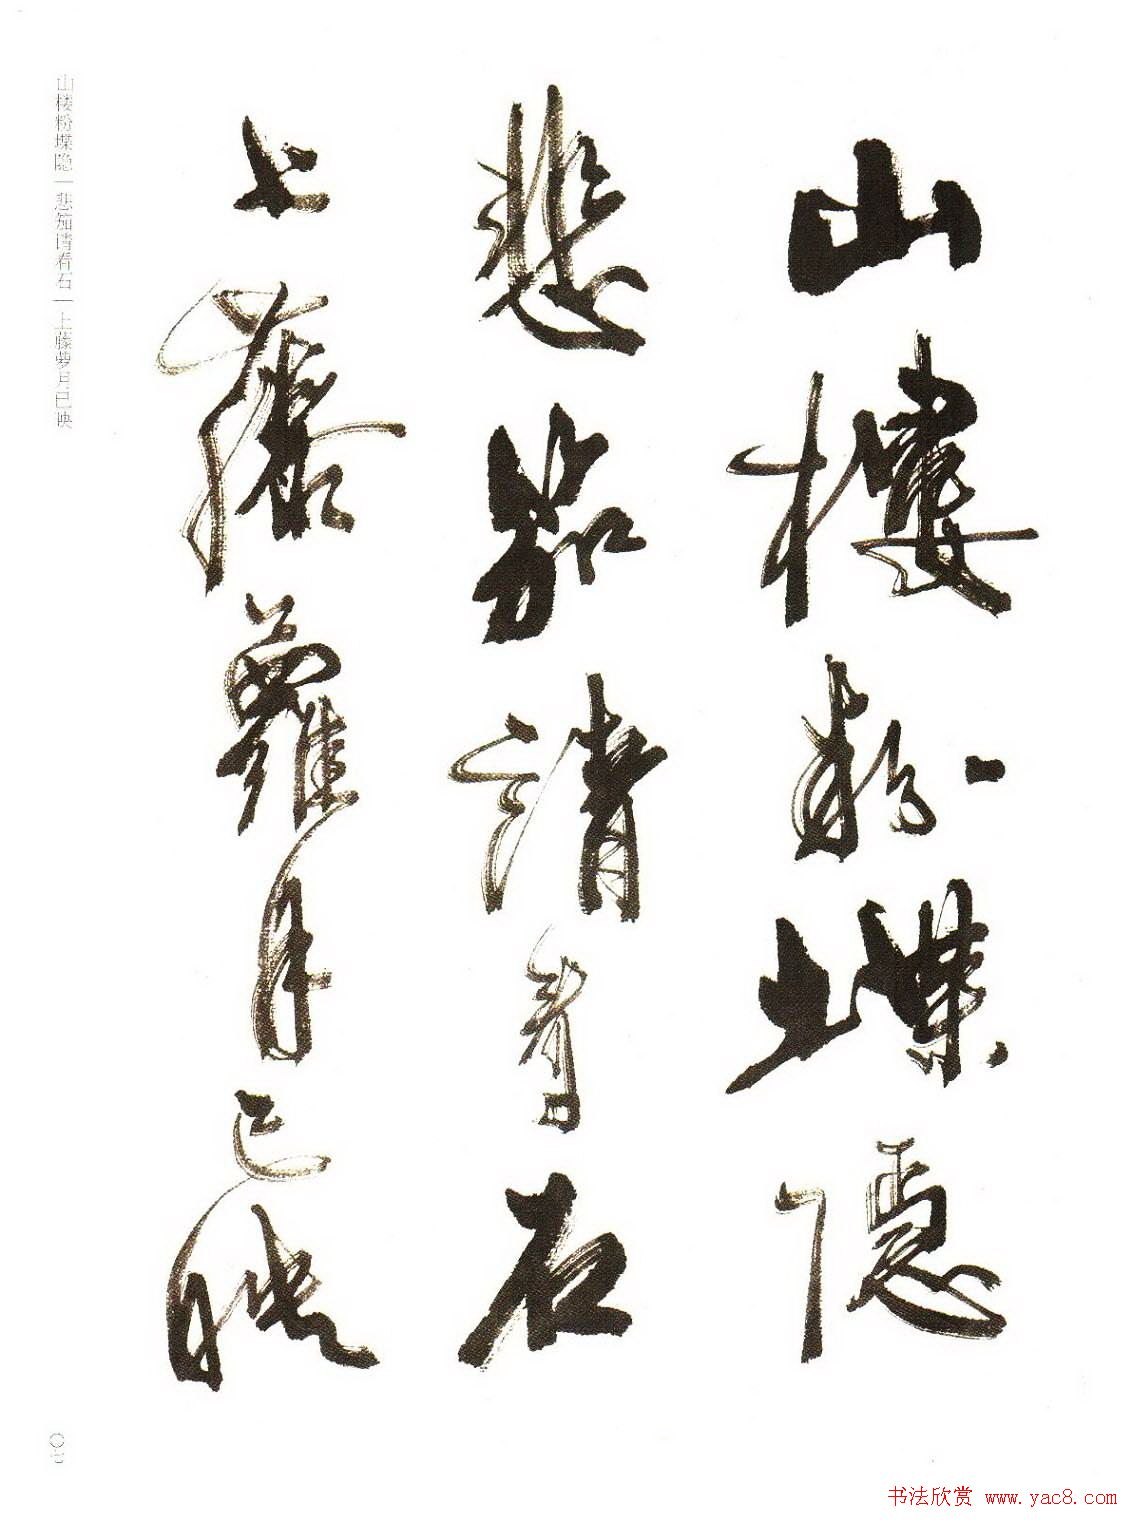 山樓粉堞隱
悲笳請看石
上藤蘿月已映
山楼粉堞隐｜悲笳请看石｜上藤萝月已映
〇七
书法欣赏 www.yac8.com